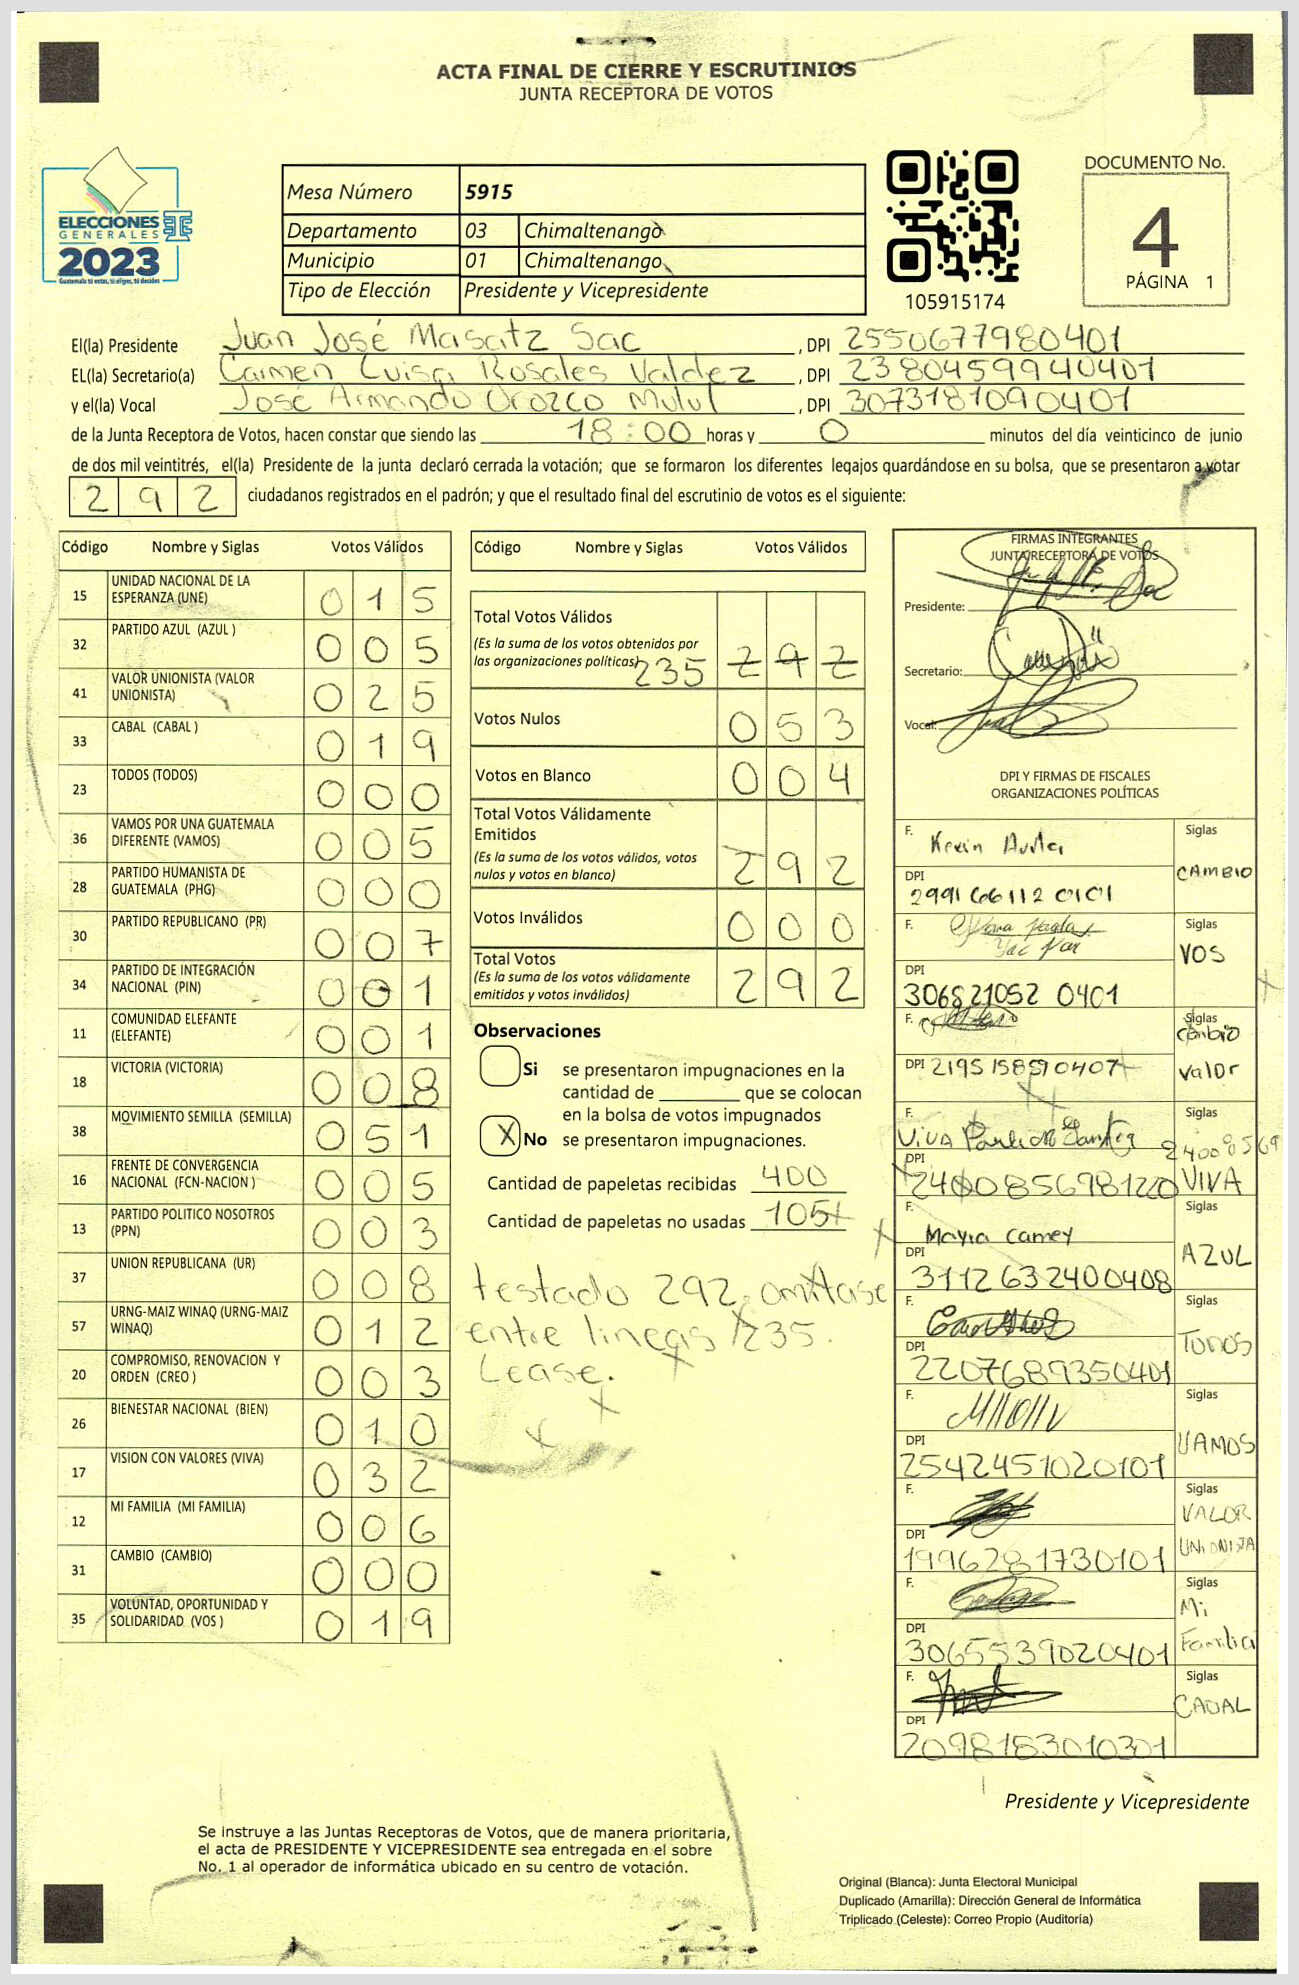 ACTA FINAL DE CIERRE Y ESCRUTINIOS
JUNTA RECEPTORA DE VOTOS
ELECCIONES
GENERALES
2023
Guatemala tú estas, tú eliges, tú decides
Mesa Número 5915
Departamento 03 Chimaltenango
Municipio 01 Chimaltenango
Tipo de Elección Presidente y Vicepresidente
105915174
DOCUMENTO No.
4
PÁGINA 1
El(la) Presidente Juan José Masatz Sac, DPI 2550677980401
EL(la) Secretario(a) Carmen Luisa Rosales Valdez, DPI 2380459940401
y el(la) Vocal José Armando Orozco Mulul, DPI 3073181090401
de la Junta Receptora de Votos, hacen constar que siendo las 18:00 horas y 0 minutos del día veinticinco de junio
de dos mil veintitrés, el(la) Presidente de la junta declaró cerrada la votación; que se formaron los diferentes legajos guardándose en su bolsa, que se presentaron a votar
292 ciudadanos registrados en el padrón; y que el resultado final del escrutinio de votos es el siguiente:
Código Nombre y Siglas Votos Válidos
15 UNIDAD NACIONAL DE LA ESPERANZA (UNE) 015
32 PARTIDO AZUL (AZUL ) 005
41 VALOR UNIONISTA (VALOR UNIONISTA) 025
33 CABAL (CABAL ) 019
23 TODOS (TODOS) 000
36 VAMOS POR UNA GUATEMALA DIFERENTE (VAMOS) 005
28 PARTIDO HUMANISTA DE GUATEMALA (PHG) 000
30 PARTIDO REPUBLICANO (PR) 007
34 PARTIDO DE INTEGRACIÓN NACIONAL (PIN) 001
11 COMUNIDAD ELEFANTE (ELEFANTE) 001
18 VICTORIA (VICTORIA) 008
38 MOVIMIENTO SEMILLA (SEMILLA) 051
16 FRENTE DE CONVERGENCIA NACIONAL (FCN-NACION ) 005
13 PARTIDO POLITICO NOSOTROS (PPN) 003
37 UNION REPUBLICANA (UR) 008
57 URNG-MAIZ WINAQ (URNG-MAIZ WINAQ) 012
20 COMPROMISO, RENOVACION Y ORDEN (CREO ) 003
26 BIENESTAR NACIONAL (BIEN) 010
17 VISION CON VALORES (VIVA) 032
12 MI FAMILIA (MI FAMILIA) 006
31 CAMBIO (CAMBIO) 000
35 VOLUNTAD, OPORTUNIDAD Y SOLIDARIDAD (VOS ) 019
Código Nombre y Siglas Votos Válidos
Total Votos Válidos
(Es la suma de los votos obtenidos por
las organizaciones políticas) 235 292
Votos Nulos 053
Votos en Blanco 004
Total Votos Válidamente
Emitidos
(Es la suma de los votos válidos, votos
nulos y votos en blanco) 292
Votos Inválidos 000
Total Votos
(Es la suma de los votos válidamente
emitidos y votos inválidos) 292
Observaciones
Si se presentaron impugnaciones en la
cantidad de ________ que se colocan
en la bolsa de votos impugnados
X No se presentaron impugnaciones.
Cantidad de papeletas recibidas 400
Cantidad de papeletas no usadas 105
testado 292, omitase
entre lineas 235.
Lease.
FIRMAS INTEGRANTES
JUNTA RECEPTORA DE VOTOS
Presidente:
Secretario:
Vocal:
DPI Y FIRMAS DE FISCALES
ORGANIZACIONES POLÍTICAS
F. Kevin Avila Siglas
DPI CAMBIO
2991661120101
F. Siglas
VOS
DPI
306821052 0401
F. Siglas
Cambio
DPI 2195158590407 Valor
F. Siglas
24008569
DPI
2400856981220 VIVA
F. Siglas
Mayra Camey
DPI AZUL
3112632400408
F. Siglas
DPI TODOS
2207689350401
F. Siglas
DPI VAMOS
2542451020101
F. Siglas
VALOR
DPI UNIONISTA
1996281730101
F. Siglas
Mi
DPI Familia
3065539020401
F. Siglas
CABAL
DPI
2098183010301
Presidente y Vicepresidente
Se instruye a las Juntas Receptoras de Votos, que de manera prioritaria,
el acta de PRESIDENTE Y VICEPRESIDENTE sea entregada en el sobre
No. 1 al operador de informática ubicado en su centro de votación.
Original (Blanca): Junta Electoral Municipal
Duplicado (Amarilla): Dirección General de Informática
Triplicado (Celeste): Correo Propio (Auditoría)